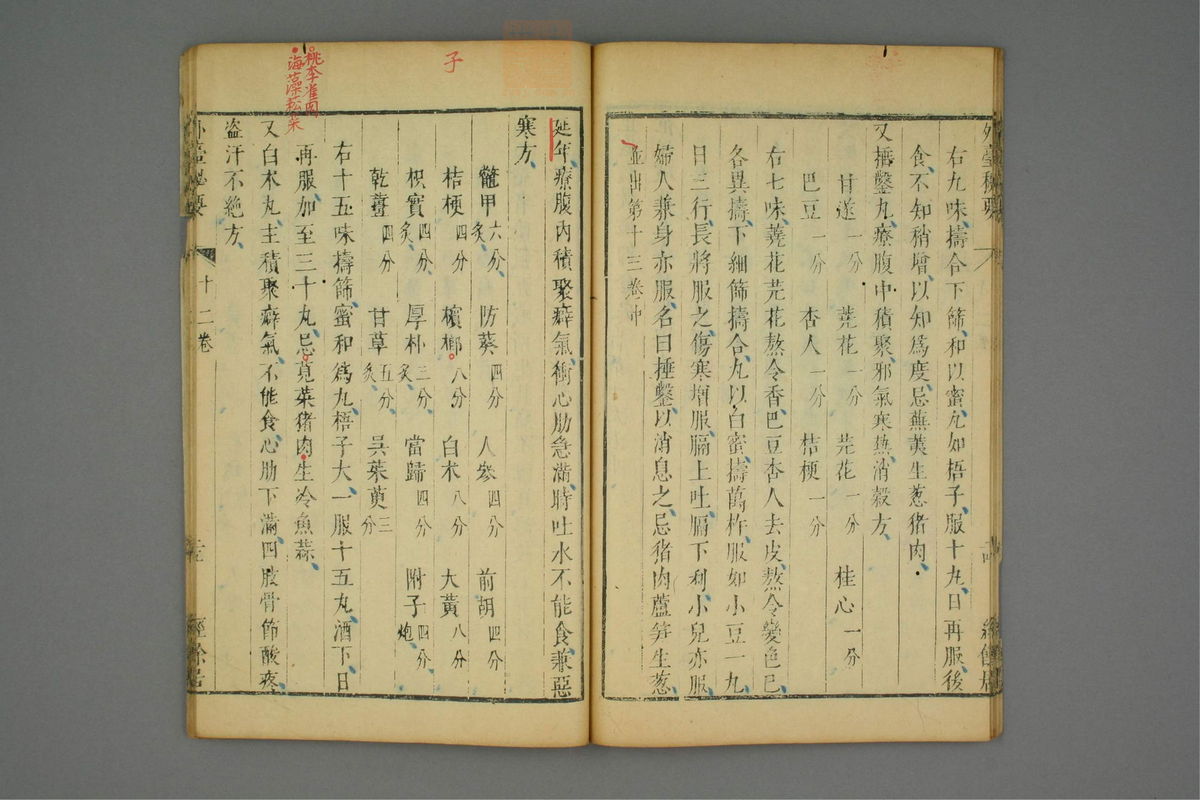 右九味擣合下篩和以蜜丸如梧子服十丸日再服後
食不知稍增以知爲度忌蕪荑生葱猪肉
又捶鑿丸療腹中積聚邪氣寒熱消穀方
甘遂一分 蕘花一分 芫花一分 桂心一分
巴豆一分 杏人一分 桔梗一分
右七味蕘花芫花熬令香巴豆杏人去皮熬令變色已
各異擣下細篩擣合丸以白蜜擣萬杵服如小豆一丸
日三行長將服之傷寒增服膈上吐膈下利小兒亦服
婦人兼身亦服名曰捶鑿以消息之忌猪肉蘆笋生葱
並出第十三卷中
延年療腹内積聚癖氣衝心肋急滿時吐水不能食兼惡
寒方
鼈甲六分炙 防葵四分 人參四分 前胡四分
桔梗四分 檳榔八分 白术八分 大黄八分
枳實四分炙 厚朴三分炙 當歸四分 附子四分炮
乾薑四分 甘草五分炙 吳茱萸三分
右十五味擣篩蜜和爲丸梧子大一服十五丸酒下日
再服加至三十丸忌莧菜猪肉生冷魚蒜
又白术丸主積聚癖氣不能食心肋下滿四肢骨節酸疼
盗汗不絶方
十二卷
子
桃李雀肉
海藻菘菜